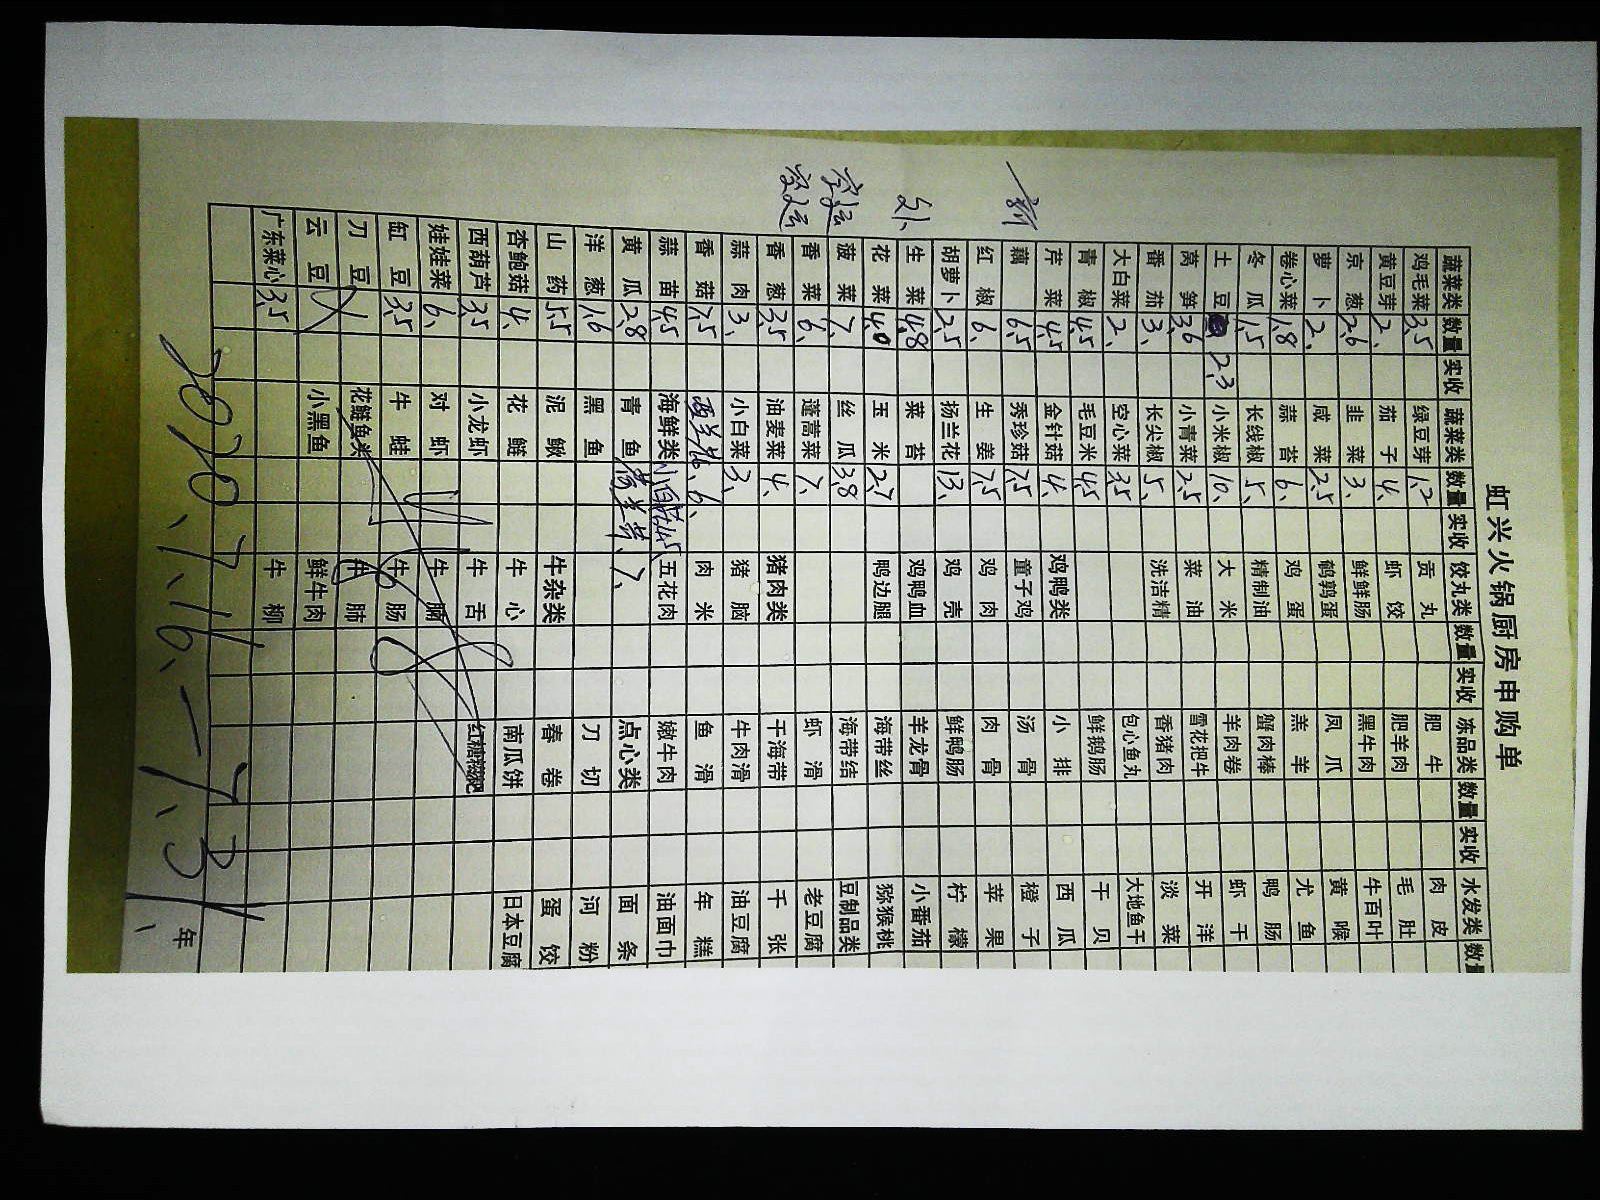 虹兴火锅厨房申购单
蔬菜类 数量 实收 蔬菜类 数量 实收 饺丸类 数量 实收 冻品类 数量 实收 水发类 数量
鸡毛菜 3.5 绿豆芽 1.2 贡丸 肥牛 肉皮
黄豆芽 2、 茄子 4、 虾饺 肥羊肉 毛肚
京葱 2.6 韭菜 3、 鲜鲜肠 黑牛肉 牛百叶
萝卜 2、 咸菜 2.5 鹌鹑蛋 凤爪 黄喉
卷心菜 1.8 蒜苔 6、 鸡蛋 羔羊 尤鱼
冬瓜 1.5 长线椒 5、 精制油 蟹肉棒 鸭肠
土豆 2.3 小米椒 10、 大米 羊肉卷 虾干
莴笋 3.6 小青菜 2.5 菜油 雪花把牛 开洋
番茄 3、 长尖椒 5、 洗洁精 香猪肉 淡菜
大白菜 2、 空心菜 3.5 包心鱼丸 大地鱼干
青椒 4.5 毛豆米 4.5 鲜鹅肠 干贝
芹菜 4.5 金针菇 4、 鸡鸭类 小排 西瓜
藕 6.5 秀珍菇 7.5 童子鸡 汤骨 橙子
红椒 6、 生姜 7.5 鸡肉 肉骨 苹果
胡萝卜 2.5 扬兰花 13、 鸡壳 鲜鸭肠 柠檬
生菜 4.8 菜苔 鸡鸭血 羊龙骨 小番茄
花菜 4.0 玉米 2.7 鸭边腿 海带丝 猕猴桃
菠菜 7、 丝瓜 3.8 海带结 豆制品类
香菜 6、 蓬蒿菜 7、 虾滑 老豆腐
香葱 3.5 油麦菜 4、 猪肉类 干海带 千张
蒜肉 3、 小白菜 3、 猪脑 牛肉滑 油豆腐
香菇 7.5 西兰花 6、 肉米 鱼滑 年糕
蒜苗 4.5 海鲜类 4.5 五花肉 嫩牛肉 油面巾
黄瓜 2.8 青鱼 7、 点心类 面条
洋葱 1.6 黑鱼 刀切 河粉
山药 5.5 泥鳅 牛杂类 春卷 蛋饺
杏鲍菇 4、 花鲢 牛心 南瓜饼 日本豆腐
西葫芦 3.5 小龙虾 牛舌 红糖糍粑
娃娃菜 6、 对虾 牛腩
缸豆 3.5 牛蛙 牛肠
刀豆 花鲢鱼类 牛肺
云豆 小黑鱼 鲜牛肉
广东菜心 3.5 牛柳
2020、7、16、—7、31、 年